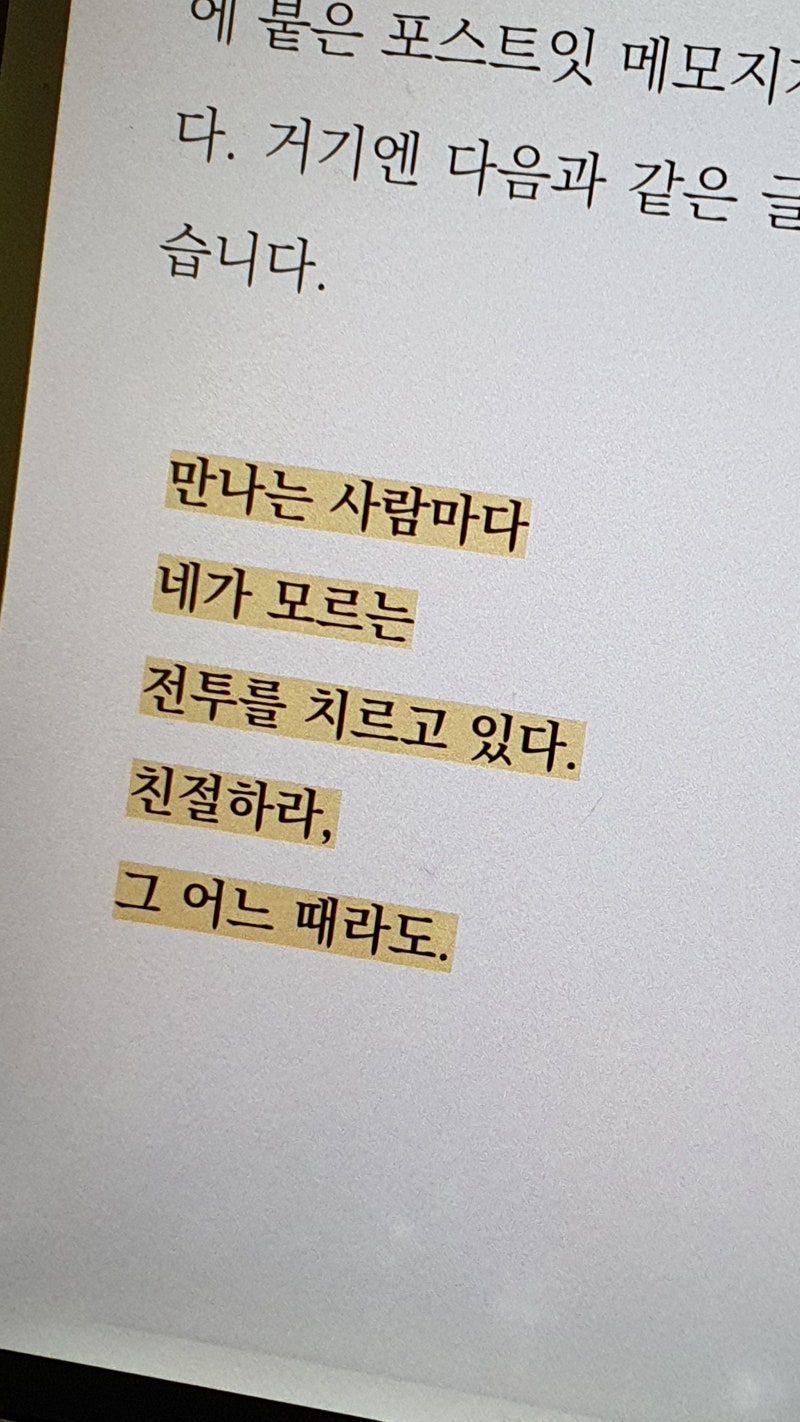 에 붙은 포스트잇 메모지
다. 거기엔 다음과 같은 글
습니다.
만나는 사람마다
네가 모르는
전투를 치르고 있다.
친절하라,
그 어느 때라도.